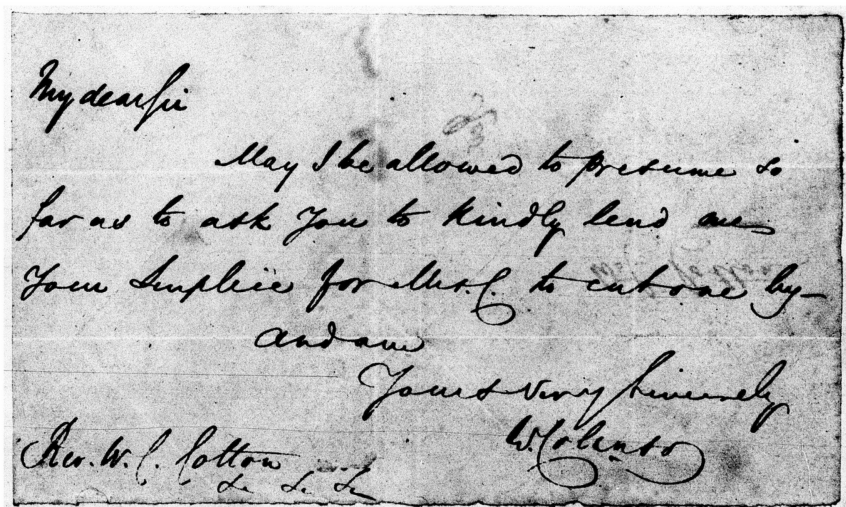 My dear Sir
May I be allowed to presume so
far as to ask you to kindly lend me
your Surplice for Mrs. C. to cut one by—
and am
Yours very Sincerely
W. Colenso
Rev. W. C. Cotton
&c &c &c